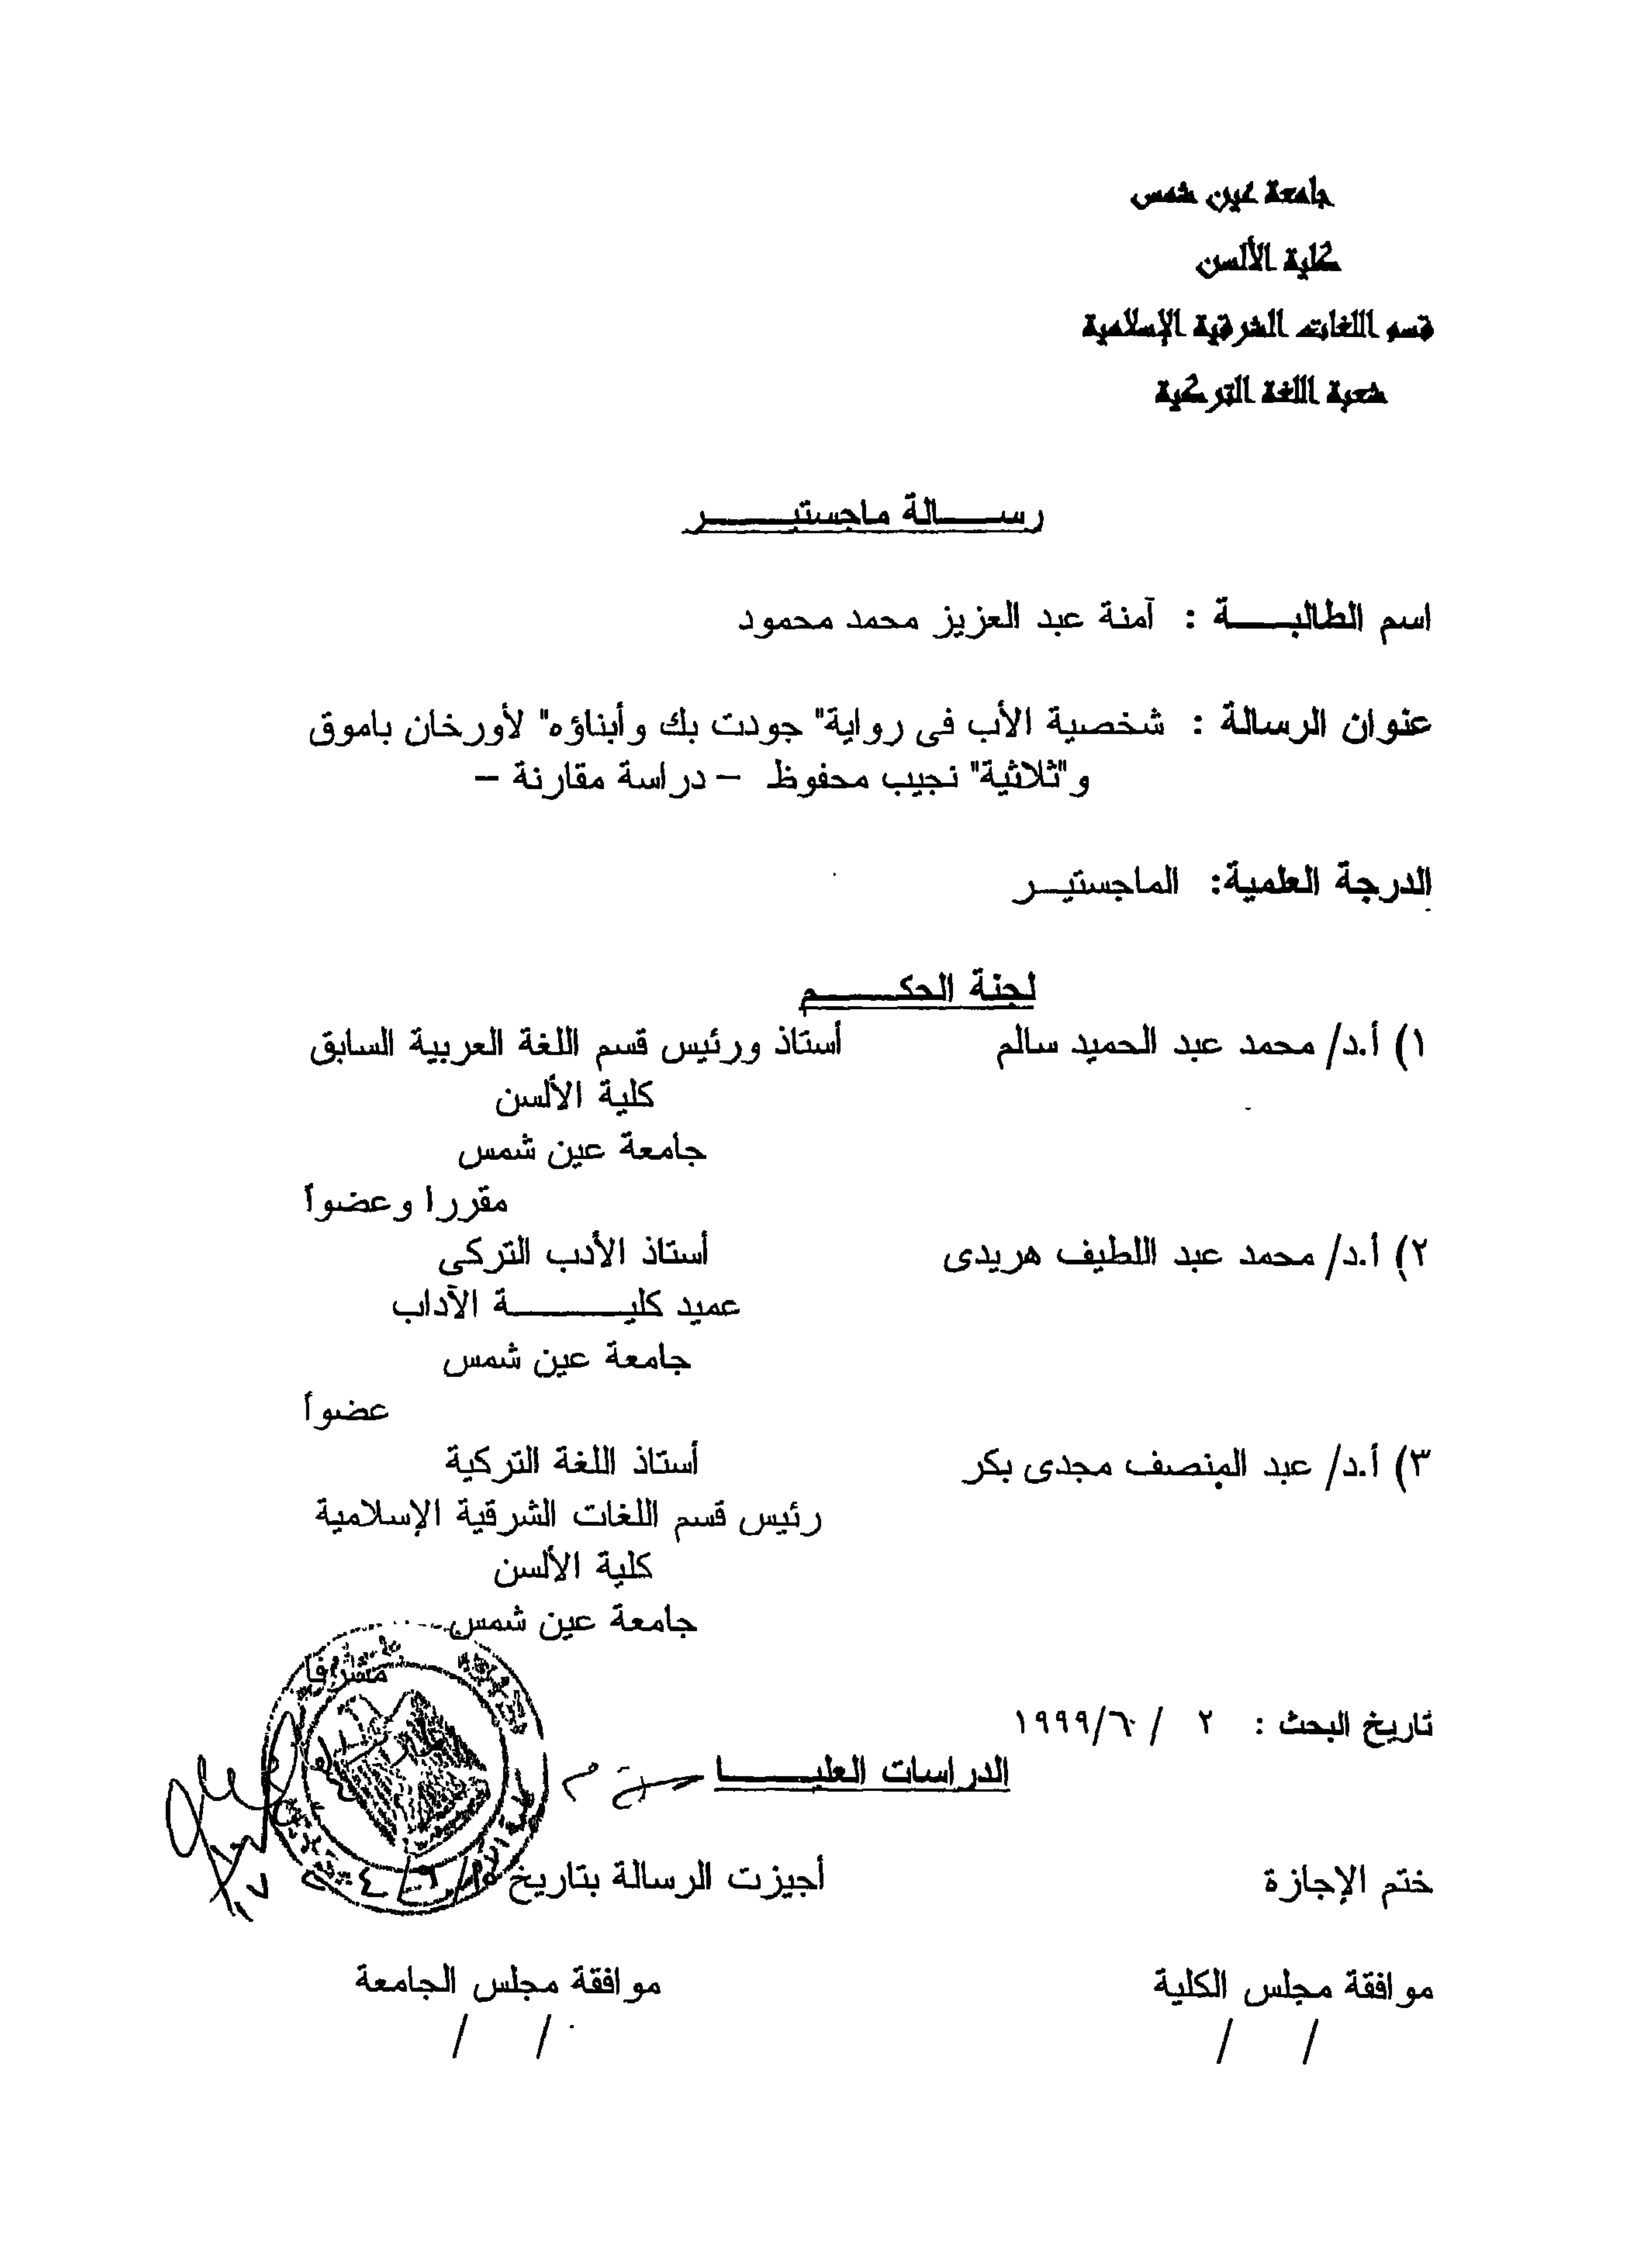 جامعة عين شمس
كلية الألسن
قسم اللغات الشرقية الإسلامية
شعبة اللغة التركية
رســـالة ماجستيـــــر
اسم الطالبـــة : آمنة عبد العزيز محمد محمود
عنوان الرسالة : شخصية الأب فى رواية" جودت بك وأبناؤه" لأورخان باموق
و"ثلاثية" نجيب محفوظ – دراسة مقارنة –
الدرجة العلمية: الماجستيـر
لجنة الحكـــــم
١) أ.د/ محمد عبد الحميد سالم أستاذ ورئيس قسم اللغة العربية السابق
كلية الألسن
جامعة عين شمس
مقررا وعضواً
٢) أ.د/ محمد عبد اللطيف هريدى أستاذ الأدب التركى
عميد كليــــــــة الآداب
جامعة عين شمس
عضواً
٣) أ.د/ عبد المنصف مجدى بكر أستاذ اللغة التركية
رئيس قسم اللغات الشرقية الإسلامية
كلية الألسن
جامعة عين شمس
مشرفا
تاريخ البحث : ٢ / ١٩٩٩/٦
الدراسات العليـــــا
ختم الإجازة أجيزت الرسالة بتاريخ
موافقة مجلس الكلية موافقة مجلس الجامعة
/ / / /